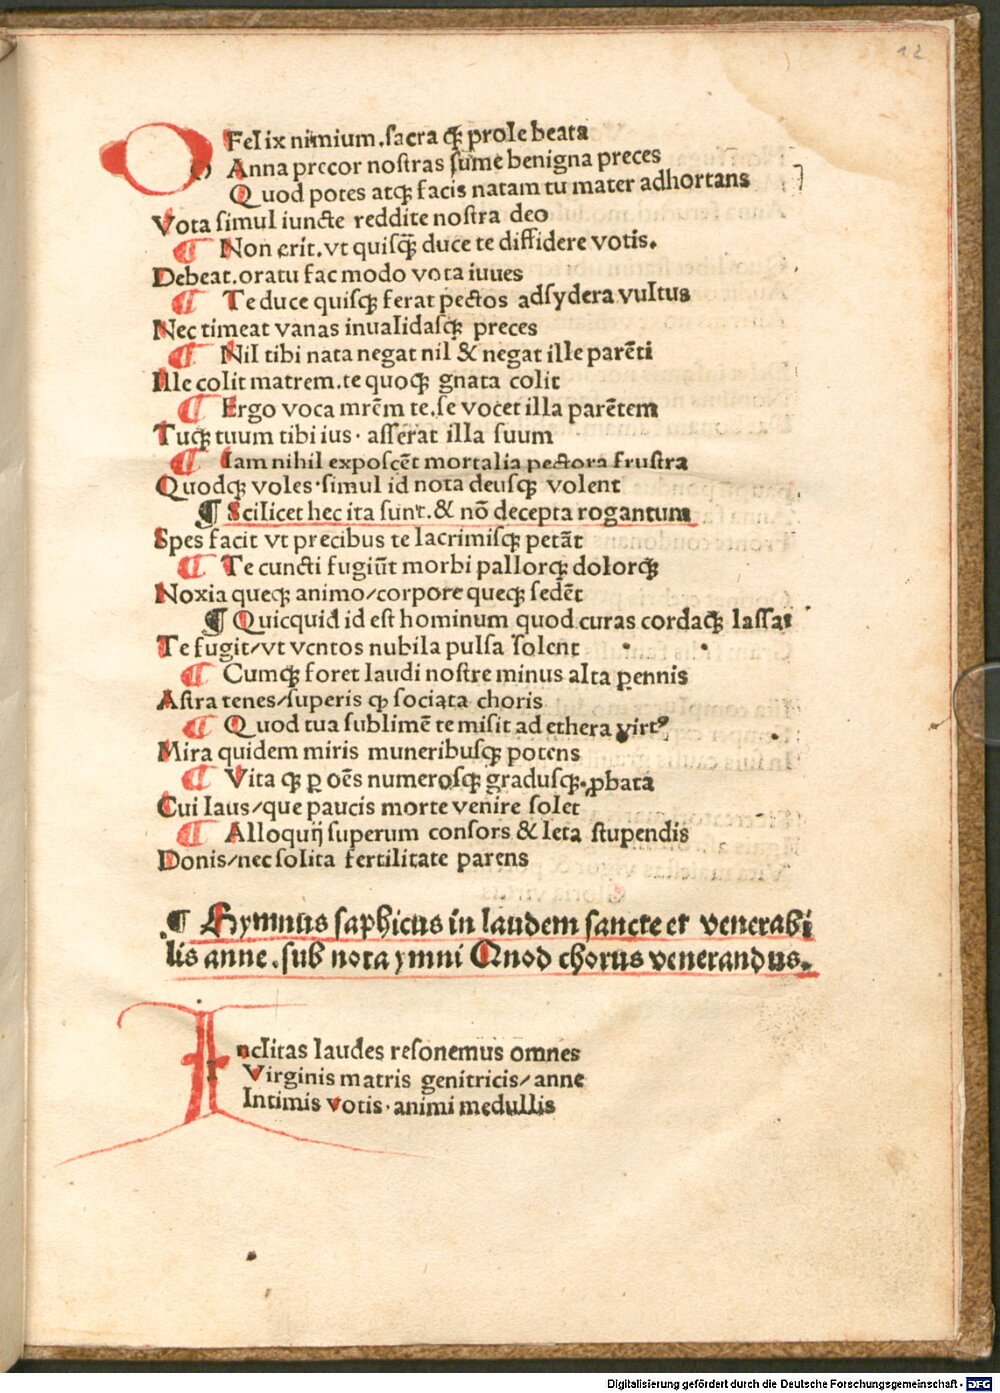 12
O Felix nimium.sacra q̃ꝫ prole beata
Anna precor nostras sũme benigna preces
Quod potes atqꝫ facis natam tu mater adhortans
Vota simul iuncte reddite nostra deo
¶ Non erit.vt quisq̃ꝫ duce te diffidere votis.
Debeat.oratu fac modo vota iuues
¶ Te duce quisqꝫ ferat pectos adsydera vultus
Nec timeat vanas inualidasqꝫ preces
¶ Nil tibi nata negat nil & negat ille parẽti
Ille colit matrem.te quoqꝫ gnata colit
¶ Ergo voca mrẽm te.se vocet illa parẽtem
Tuqꝫ tuum tibi ius. asserat illa suum
¶ Iam nihil exposcẽt mortalia pectora frustra
Quodqꝫ voles.simul id nota deusqꝫ volent
¶ Scilicet hec ita sunt.& nõ decepta rogantum
Spes facit vt precibus te lacrimisqꝫ petãt
¶ Te cuncti fugiũt morbi pallorqꝫ dolorqꝫ
Noxia queqꝫ animo/corpore queqꝫ sedẽt
¶ Quicquid id est hominum quod curas cordaqꝫ lassat
Te fugit/vt ventos nubila pulsa solent
¶ Cumqꝫ foret laudi nostre minus alta ꝑennis
Astra tenes/superis ꝙ sociata choris
¶ Quod tua sublimẽ te misit ad ethera virtꝰ
Mira quidem miris muneribusqꝫ potens
¶ Vita qꝫ ꝑ oẽs numerosqꝫ gradusqꝫ.ꝓbata
Cui laus/que paucis morte venire solet
¶ Alloquij superum consors & leta stupendis
Donis/nec solita fertilitate parens
¶ Hymnus saphicus in laudem sancte et venerabi
lis anne.sub nota ymni Quod chorus venerandus.
Inclitas laudes resonemus omnes
Virginis matris genitricis/anne
Intimis votis.animi medullis
Digitalisierung gefördert durch die Deutsche Forschungsgemeinschaft - DFG